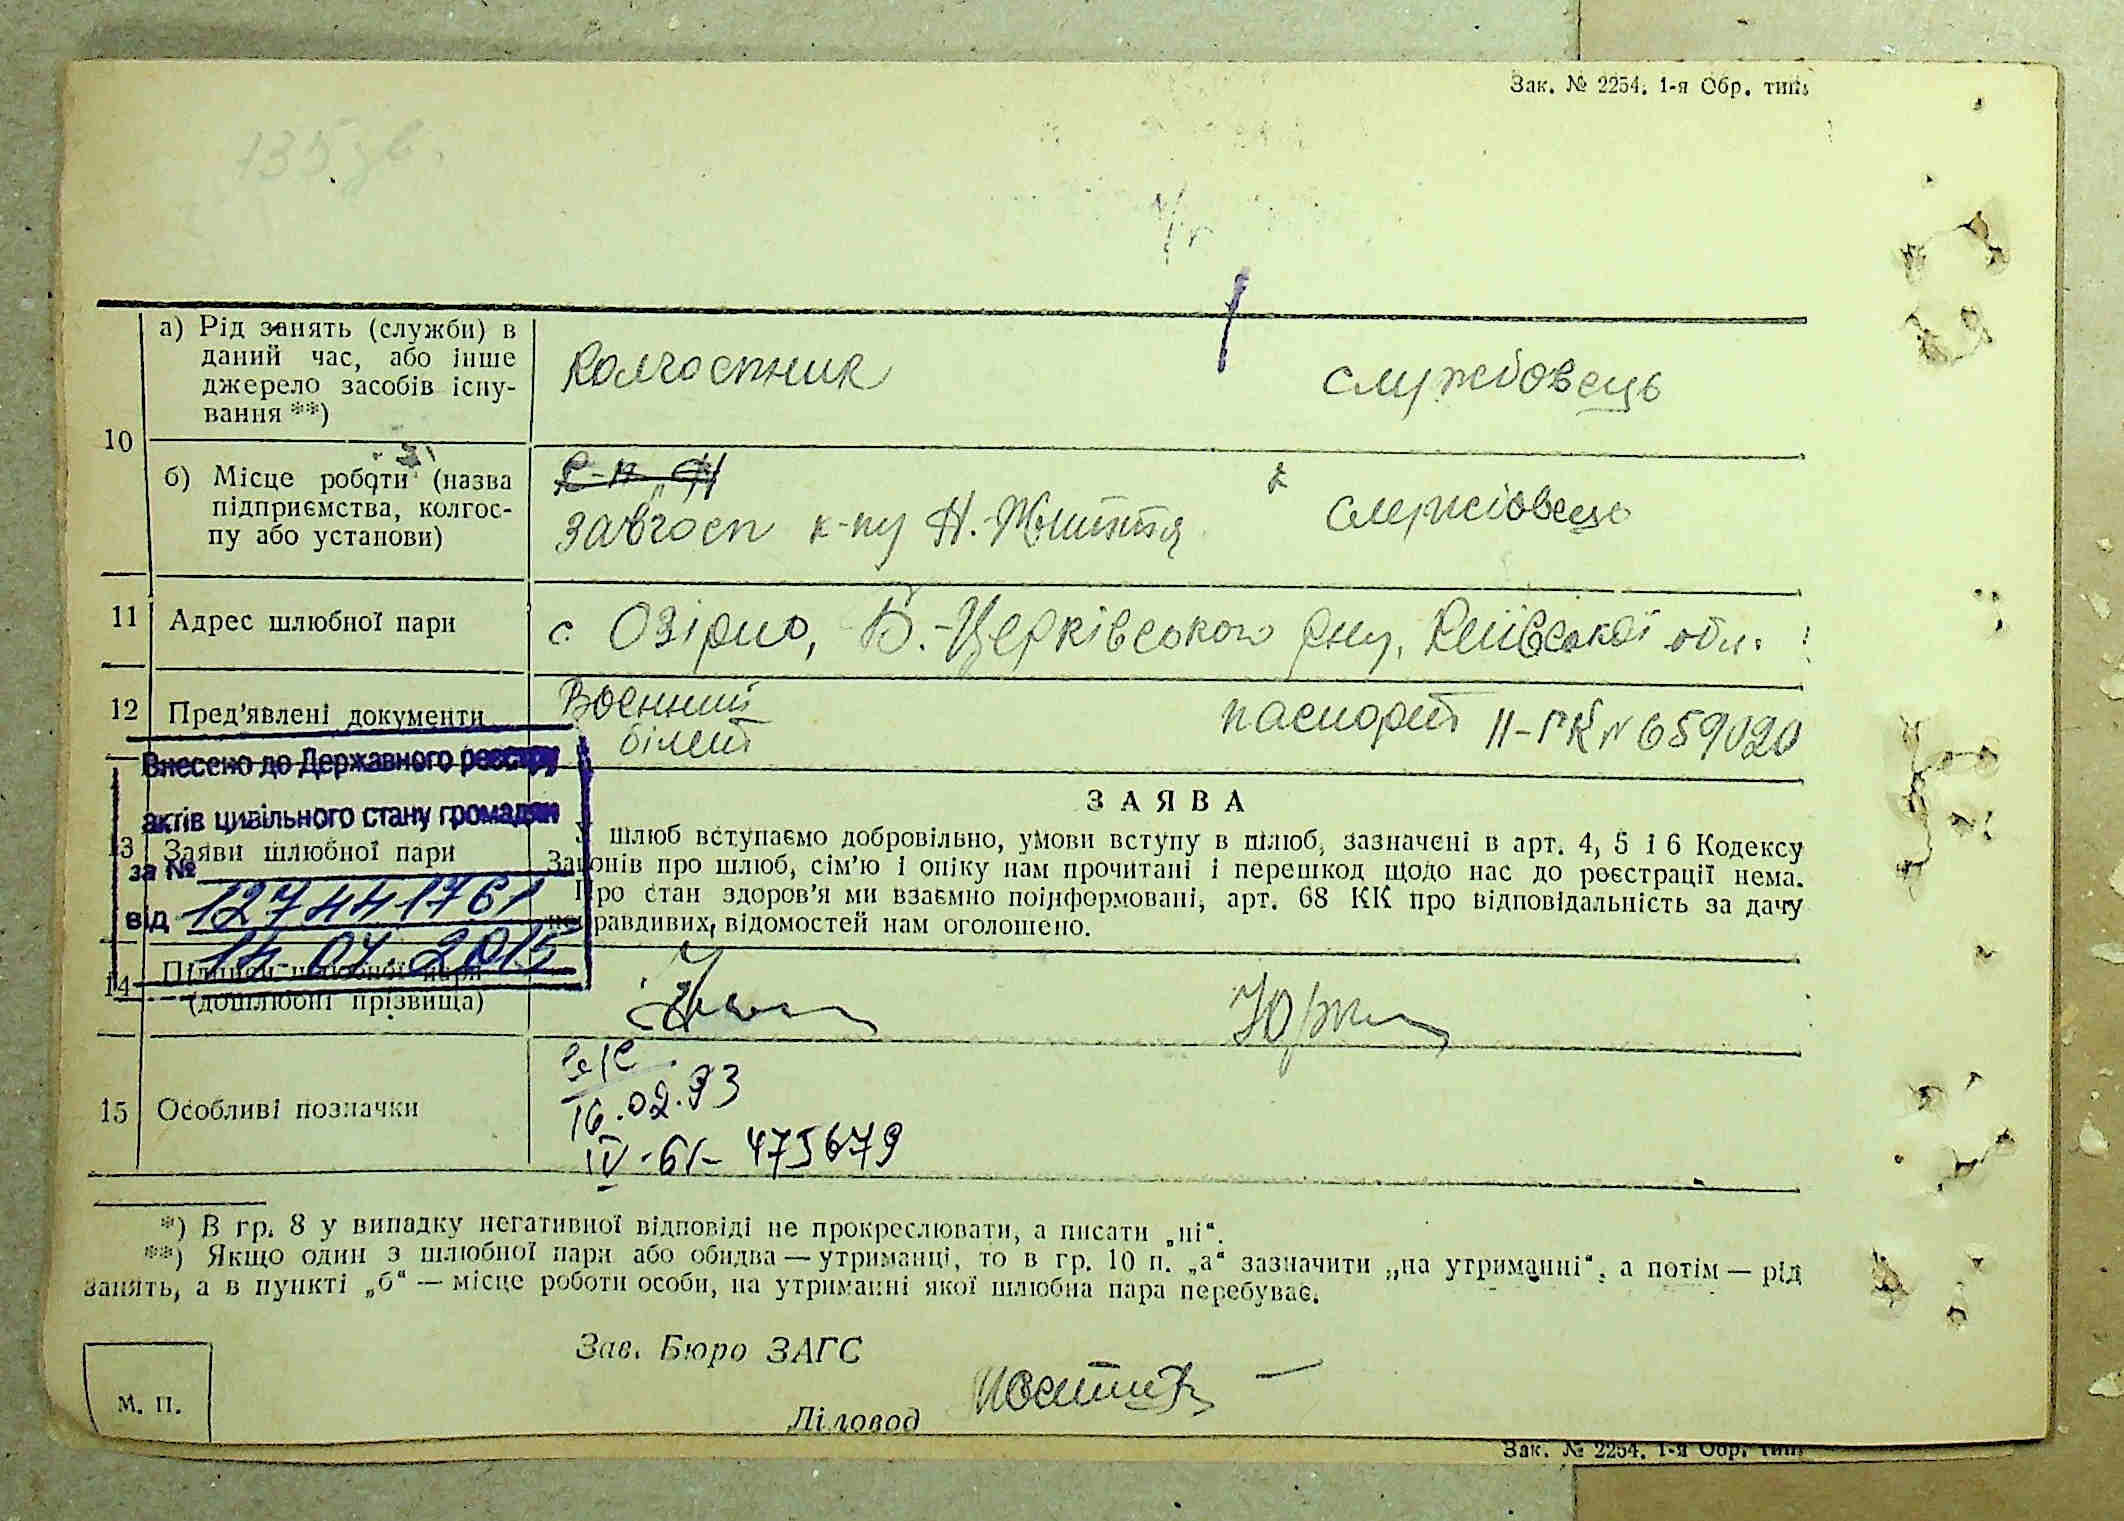 Зак. № 2254. 1-я Обр. тип.
135 зв.
10
а) Рід занять (служби) в
даний час, або інше
джерело засобів існу-
вання **)
колгоспник
службовець
б) Місце роботи (назва
підприємства, колгос-
пу або установи)
завгосп к-пу Н.-Життя
службовець
11 Адрес шлюбної пари
с. Озірно, Б.-Церківського р-ну, Київської обл.
12 Пред'явлені документи
Воєнний
білет
паспорт II-ГК № 659020
Внесено до Державного реєстру
актів цивільного стану громадян
за № 127441761
від 14.07.2015
13 Заяви шлюбної пари
ЗАЯВА
У шлюб вступаємо добровільно, умови вступу в шлюб, зазначені в арт. 4, 5 і 6 Кодексу
Законів про шлюб, сім'ю і опіку нам прочитані і перешкод щодо нас до реєстрації нема.
Про стан здоров'я ми взаємно поінформовані, арт. 68 КК про відповідальність за дачу
неправдивих відомостей нам оголошено.
14 Підписи шлюбної пари
(дошлюбні прізвища)
15 Особливі позначки
16.02.93
IV-61- 475679
*) В гр. 8 у випадку негативної відповіді не прокреслювати, а писати „ні“.
**) Якщо один з шлюбної пари або обидва — утриманці, то в гр. 10 п. „а“ зазначити „на утриманні“, а потім — рід
занять, а в пункті „б“ — місце роботи особи, на утриманні якої шлюбна пара перебуває.
Зав. Бюро ЗАГС
М. П.
Діловод
Зак. № 2254. 1-я Обр. тип.